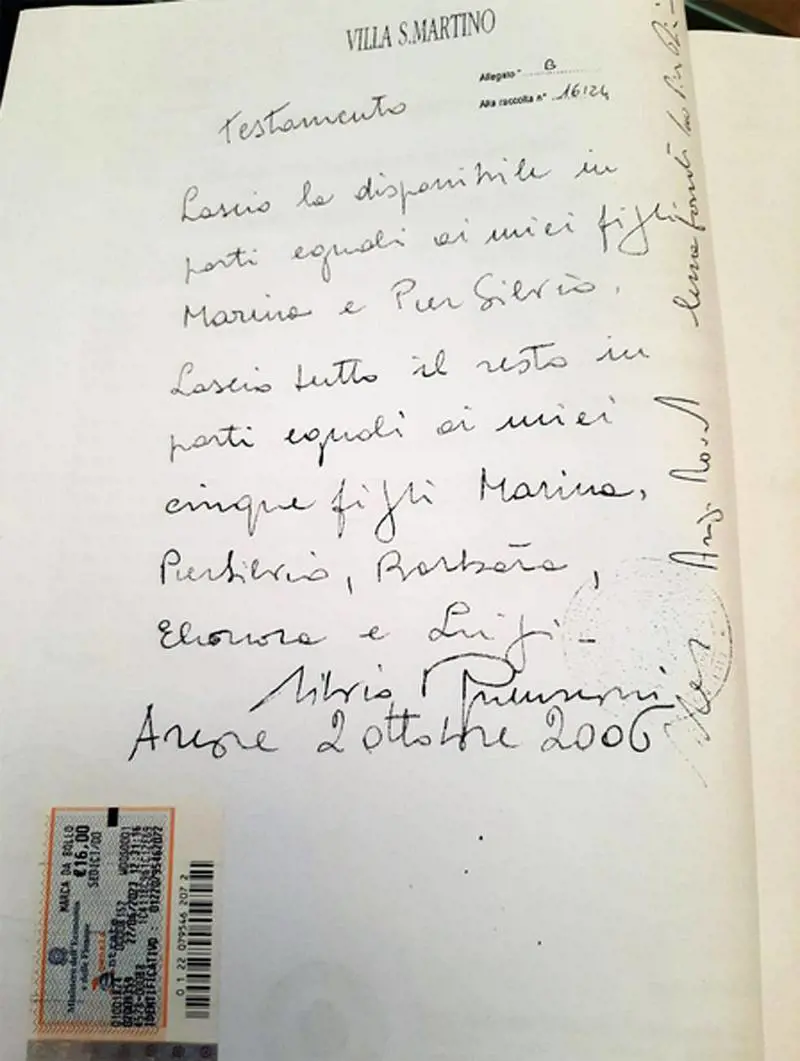 VILLA S.MARTINO
Allegato " B
Alla raccolta n° 16124
Testamento
Lascio la disponibile in
parti eguali ai miei figli
Marina e Pier Silvio.
Lascio tutto il resto in
parti eguali ai miei
cinque figli Marina,
PierSilvio, Barbara,
Eleonora e Luigi -
Silvio Berlusconi
Arcore 2 ottobre 2006
MARCA DA BOLLO
€16,00
SEDICI/00
Ministero dell'Economia
e delle Finanze
IDENTIFICATIVO :
0 1 22 079546 207 2